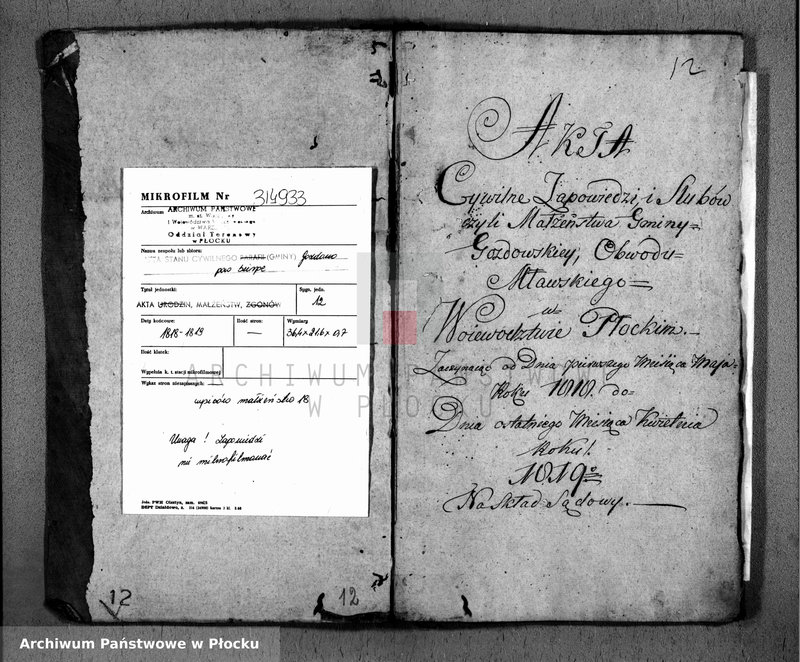 MIKROFILM Nr 314933
Archiwum ARCHIWUM PAŃSTWOWE
m. st. Warszawy
i Województwa Warszawskiego
w WARSZ
Oddział Terenowy
w PŁOCKU
Nazwa zespołu lub zbioru:
AKTA STANU CYWILNEGO PARAFII (GMINY) Gozdowo
pow. Sierpc
Tytuł jednostki:
AKTA URODZIN, MAŁŻEŃSTW, ZGONÓW
Sygn. jedn.
12
Daty końcowe:
1818-1819
Ilość stron:
—
Wymiary
36,4 x 21,6 x 0,7
Ilość klatek:
Wypełnia k. t. stacji mikrofilmowej
Wykaz stron niezapisanych:
wpisów małżeństw 18
Uwaga! Zapowiedzi
nie mikrofilmować
12
12
12
AKTA
Cywilne Zapowiedzi i Slubów
czyli Małżeństwa Gminy=
Gozdowskiey, Obwodu=
Mławskiego=
w
Woiewodztwie Płockim.—
Zaczynaiąc od Dnia pierwszego Miesiąca Maja=
Roku 1818. do=
Dnia ostatniego Miesiąca Kwietnia
Roku!
1819º
Na Skład Sądowy.—
ARCHIWUM PAŃSTWOWE
W PŁOCKU
Archiwum Państwowe w Płocku